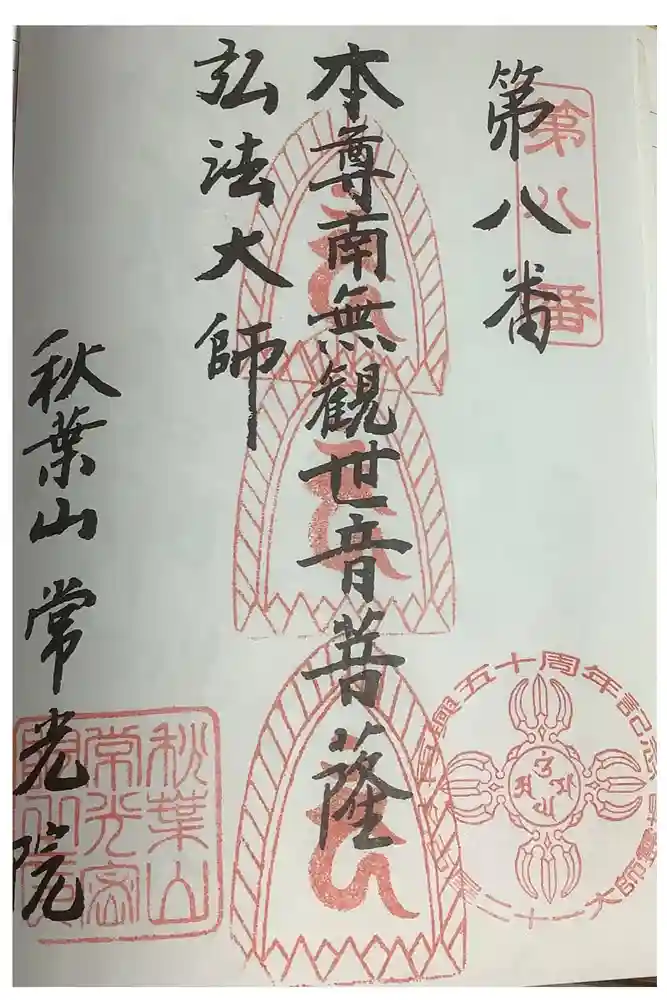 第八番
第八番
本尊南無観世音菩薩
弘法大師
秋葉山常光院
秋葉山
常光密
五十周年記念
二十一大師霊